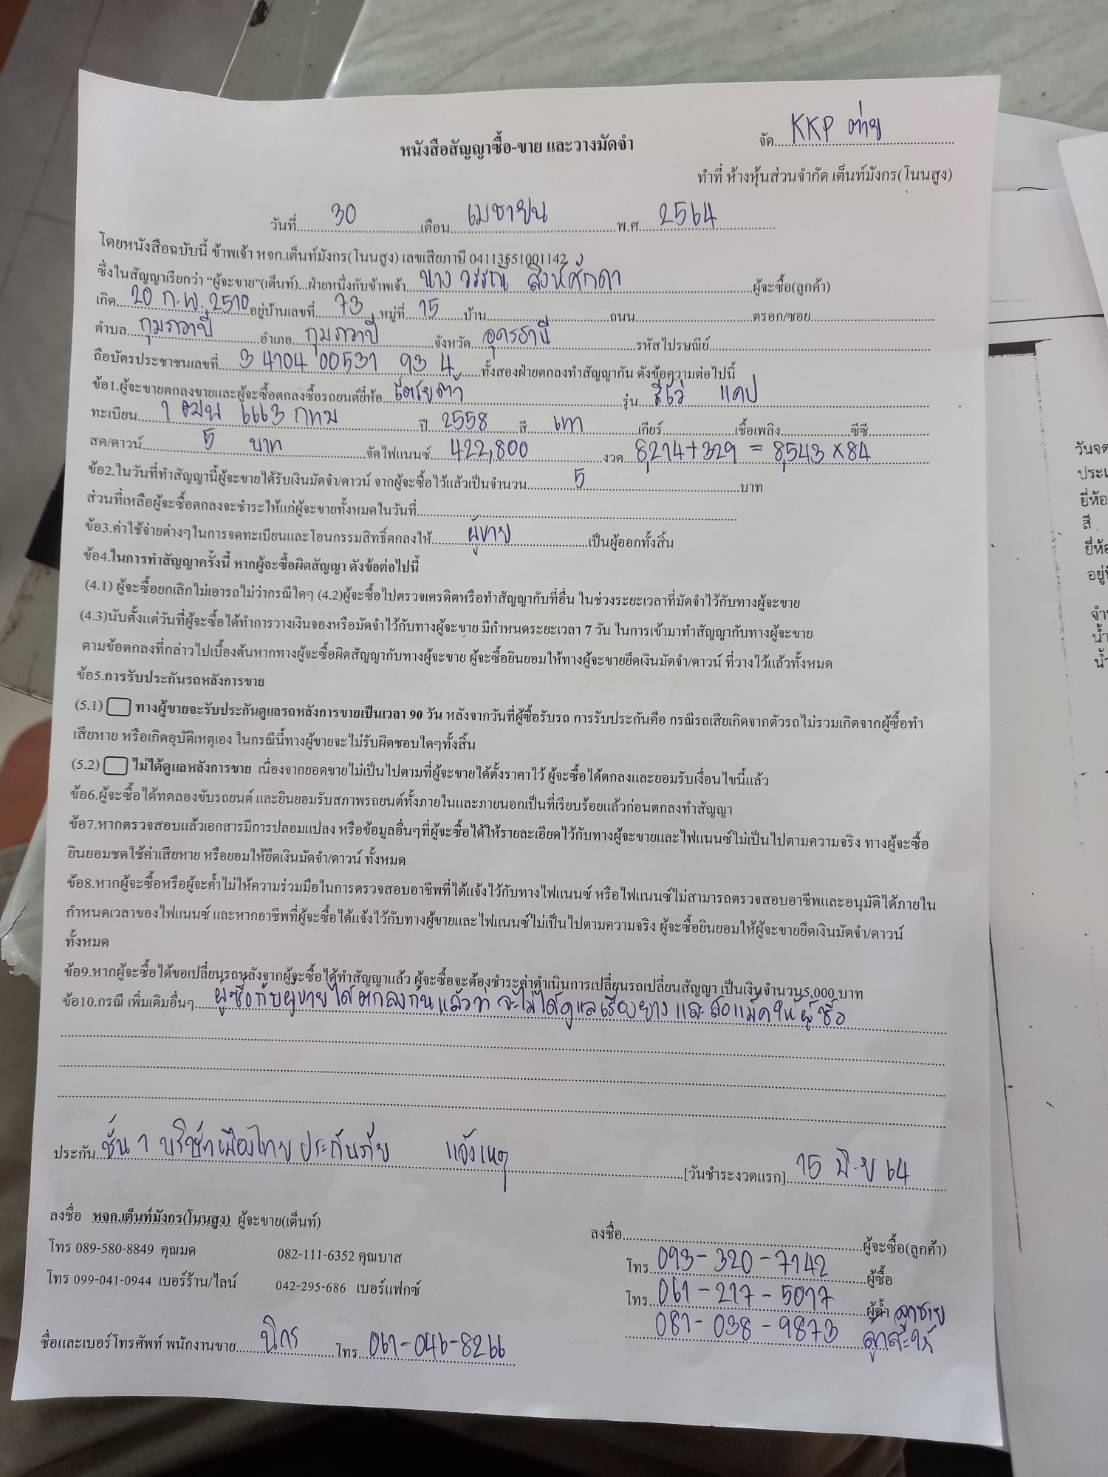 หนังสือสัญญาซื้อ-ขาย และวางมัดจำ
จัด KKP ต่าย
ทำที่ ห้างหุ้นส่วนจำกัด เต็นท์มังกร(โนนสูง)
วันที่ 30 เดือน เมษายน พ.ศ. 2564
โดยหนังสือฉบับนี้ ข้าพเจ้า หจก.เต็นท์มังกร(โนนสูง) เลขเสียภาษี
ซึ่งในสัญญาเรียกว่า "ผู้จะขาย"(เต็นท์)...ฝ่ายหนึ่งกับข้าพเจ้า นาง วรรณี สิงห์ศักดา ผู้จะซื้อ(ลูกค้า)
เกิด 20 ก.พ. 2510 อยู่บ้านเลขที่ 73 หมู่ที่ 15 บ้าน ถนน ตรอก/ซอย
ตำบล กุมภวาปี อำเภอ กุมภวาปี จังหวัด อุดรธานี รหัสไปรษณีย์
ถือบัตรประชาชนเลขที่ 3 4104 00531 93 4 ทั้งสองฝ่ายตกลงทำสัญญากัน ดังข้อความต่อไปนี้
ข้อ1.ผู้จะขายตกลงขายและผู้จะซื้อตกลงซื้อรถยนต์ยี่ห้อ โตโยต้า รุ่น รีโว่ แคป
ทะเบียน 1 6663 กทม ปี 2558 สี เทา เกียร์ เชื้อเพลิง ซีซี
สด/ดาวน์ 5 บาท จัดไฟแนนซ์ 422,800 งวด 8,214+329 = 8,543 x 84
ข้อ2.ในวันที่ทำสัญญานี้ผู้จะขายได้รับเงินมัดจำ/ดาวน์ จากผู้จะซื้อไว้แล้วเป็นจำนวน 5 บาท
ส่วนที่เหลือผู้จะซื้อตกลงจะชำระให้แก่ผู้จะขายทั้งหมดในวันที่
ข้อ3.ค่าใช้จ่ายต่างๆในการจดทะเบียนและโอนกรรมสิทธิ์ตกลงให้ ผู้ขาย เป็นผู้ออกทั้งสิ้น
ข้อ4.ในการทำสัญญาครั้งนี้ หากผู้จะซื้อผิดสัญญา ดังข้อต่อไปนี้
(4.1) ผู้จะซื้อยกเลิกไม่เอารถไม่ว่ากรณีใดๆ (4.2)ผู้จะซื้อไปตรวจเครดิตหรือทำสัญญากับที่อื่น ในช่วงระยะเวลาที่มัดจำไว้กับทางผู้จะขาย
(4.3)นับตั้งแต่วันที่ผู้จะซื้อได้ทำการวางเงินจองหรือมัดจำไว้กับทางผู้จะขาย มีกำหนดระยะเวลา 7 วัน ในการเข้ามาทำสัญญากับทางผู้จะขาย
ตามข้อตกลงที่กล่าวไปเบื้องต้นหากทางผู้จะซื้อผิดสัญญากับทางผู้จะขาย ผู้จะซื้อยินยอมให้ทางผู้จะขายยึดเงินมัดจำ/ดาวน์ ที่วางไว้แล้วทั้งหมด
ข้อ5.การรับประกันรถหลังการขาย
(5.1) ทางผู้ขายจะรับประกันดูแลรถหลังการขายเป็นเวลา 90 วัน หลังจากวันที่ผู้ซื้อรับรถ การรับประกันคือ กรณีรถเสียเกิดจากตัวรถไม่รวมเกิดจากผู้ซื้อทำ
เสียหาย หรือเกิดอุบัติเหตุเอง ในกรณีนี้ทางผู้ขายจะไม่รับผิดชอบใดๆทั้งสิ้น
(5.2) ไม่ได้ดูแลหลังการขาย เนื่องจากยอดขายไม่เป็นไปตามที่ผู้จะขายได้ตั้งราคาไว้ ผู้จะซื้อได้ตกลงและยอมรับเงื่อนไขนี้แล้ว
ข้อ6.ผู้จะซื้อได้ทดลองขับรถยนต์ และยินยอมรับสภาพรถยนต์ทั้งภายในและภายนอกเป็นที่เรียบร้อยแล้วก่อนตกลงทำสัญญา
ข้อ7.หากตรวจสอบแล้วเอกสารมีการปลอมแปลง หรือข้อมูลอื่นๆที่ผู้จะซื้อได้ให้รายละเอียดไว้กับทางผู้จะขายและไฟแนนซ์ไม่เป็นไปตามความจริง ทางผู้จะซื้อ
ยินยอมชดใช้ค่าเสียหาย หรือยอมให้ยึดเงินมัดจำ/ดาวน์ ทั้งหมด
ข้อ8.หากผู้จะซื้อหรือผู้จะค้ำไม่ให้ความร่วมมือในการตรวจสอบอาชีพที่ได้แจ้งไว้กับทางไฟแนนซ์ หรือไฟแนนซ์ไม่สามารถตรวจสอบอาชีพและอนุมัติได้ภายใน
กำหนดเวลาของไฟแนนซ์ และหากอาชีพที่ผู้จะซื้อได้แจ้งไว้กับทางผู้ขายและไฟแนนซ์ไม่เป็นไปตามความจริง ผู้จะซื้อยินยอมให้ผู้จะขายยึดเงินมัดจำ/ดาวน์
ทั้งหมด
ข้อ9.หากผู้จะซื้อได้ขอเปลี่ยนรถหลังจากผู้จะซื้อได้ทำสัญญาแล้ว ผู้จะซื้อจะต้องชำระค่าดำเนินการเปลี่ยนรถเปลี่ยนสัญญา เป็นเงินจำนวน5,000 บาท
ข้อ10.กรณี เพิ่มเติมอื่นๆ ผู้ซื้อกับผู้ขายได้ตกลงกันแล้วว่า จะไม่ได้ดูแลเรื่องยาง และ ล้อแม็คให้ผู้ซื้อ
ประกัน ชั้น 1 บริษัทเมืองไทยประกันภัย แจ้งเหตุ [วันชำระงวดแรก] 15 มิ.ย 64
ลงชื่อ หจก.เต็นท์มังกร(โนนสูง) ผู้จะขาย(เต็นท์)
ลงชื่อ ผู้จะซื้อ(ลูกค้า)
โทร 089-580-8849 คุณมด 082-111-6352 คุณบาส
โทร 093-320-7142 ผู้ซื้อ
โทร 099-041-0944 เบอร์ร้าน/ไลน์ 042-295-686 เบอร์แฟกซ์
โทร 061-217-5017 ผู้ค้ำ ลูกชาย
081-038-9873 ลูกสะใภ้
ชื่อและเบอร์โทรศัพท์ พนักงานขาย นิกร โทร 061-046-8266
วันจด
ประเ
ยี่ห้อ
สี
ยี่ห้อ
อยู่ที่